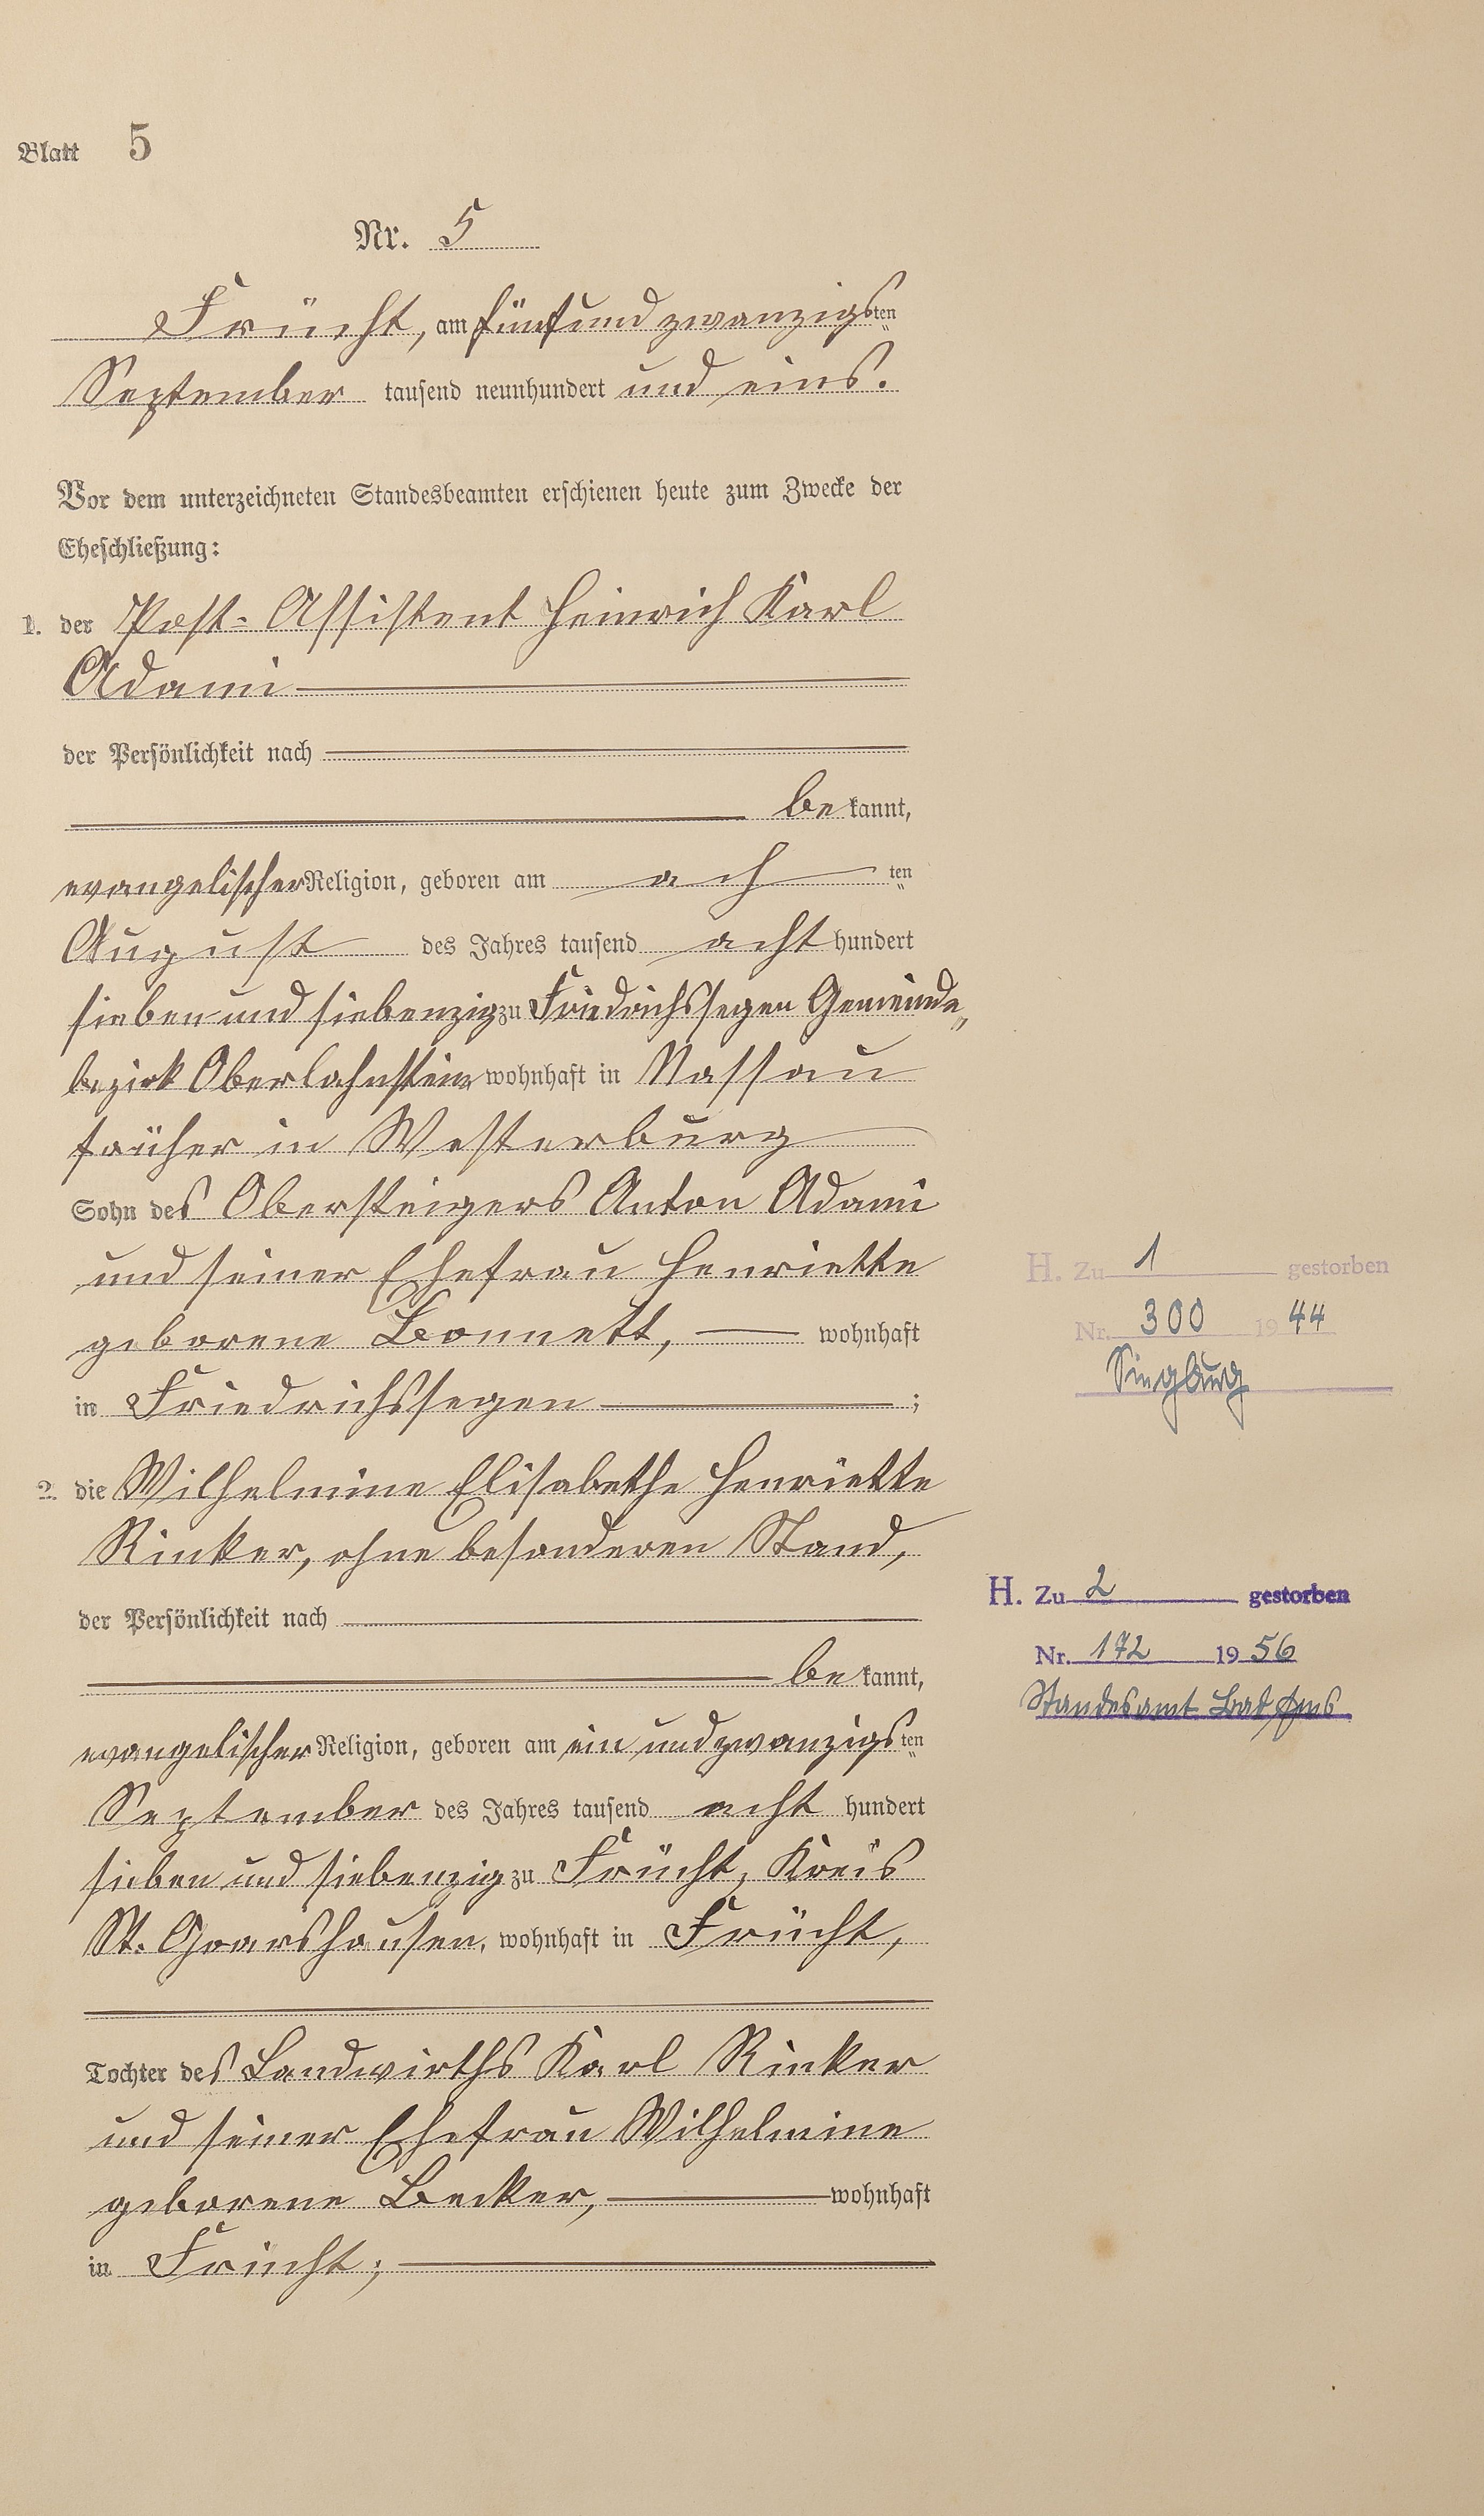 Blatt 5
Nr. 5
Frücht, am fünfundzwanzigsten
September tausend neunhundert und eins.
Vor dem unterzeichneten Standesbeamten erschienen heute zum Zwecke der
Eheschließung:
1. der Post-Assistent Heinrich Karl
Adami
der Persönlichkeit nach
bekannt,
evangelischer Religion, geboren am achten
August des Jahres tausend acht hundert
sieben und siebenzig zu Friedrichssegen Gemeinde„
bezirk Oberlahnstein wohnhaft in Nassau
früher in Westerburg
Sohn des Obersteigers Anton Adami
und seiner Ehefrau Henriette
geborene Bonnett, wohnhaft
in Friedrichssegen ;
2. die Wilhelmine Elisabethe Henriette
Rinker, ohne besonderen Stand,
der Persönlichkeit nach
bekannt,
evangelischer Religion, geboren am ein und zwanzigsten
September des Jahres tausend acht hundert
sieben und siebenzig zu Frücht, Kreis
St. Goarshausen, wohnhaft in Frücht,
Tochter des Landwirths Karl Rinker
und seiner Ehefrau Wilhelmine
geborene Becker, wohnhaft
in Frücht;
H. Zu 1 gestorben
Nr. 300 1944
Siegburg
H. Zu 2 gestorben
Nr. 172 1956
Standesamt Bad Ems